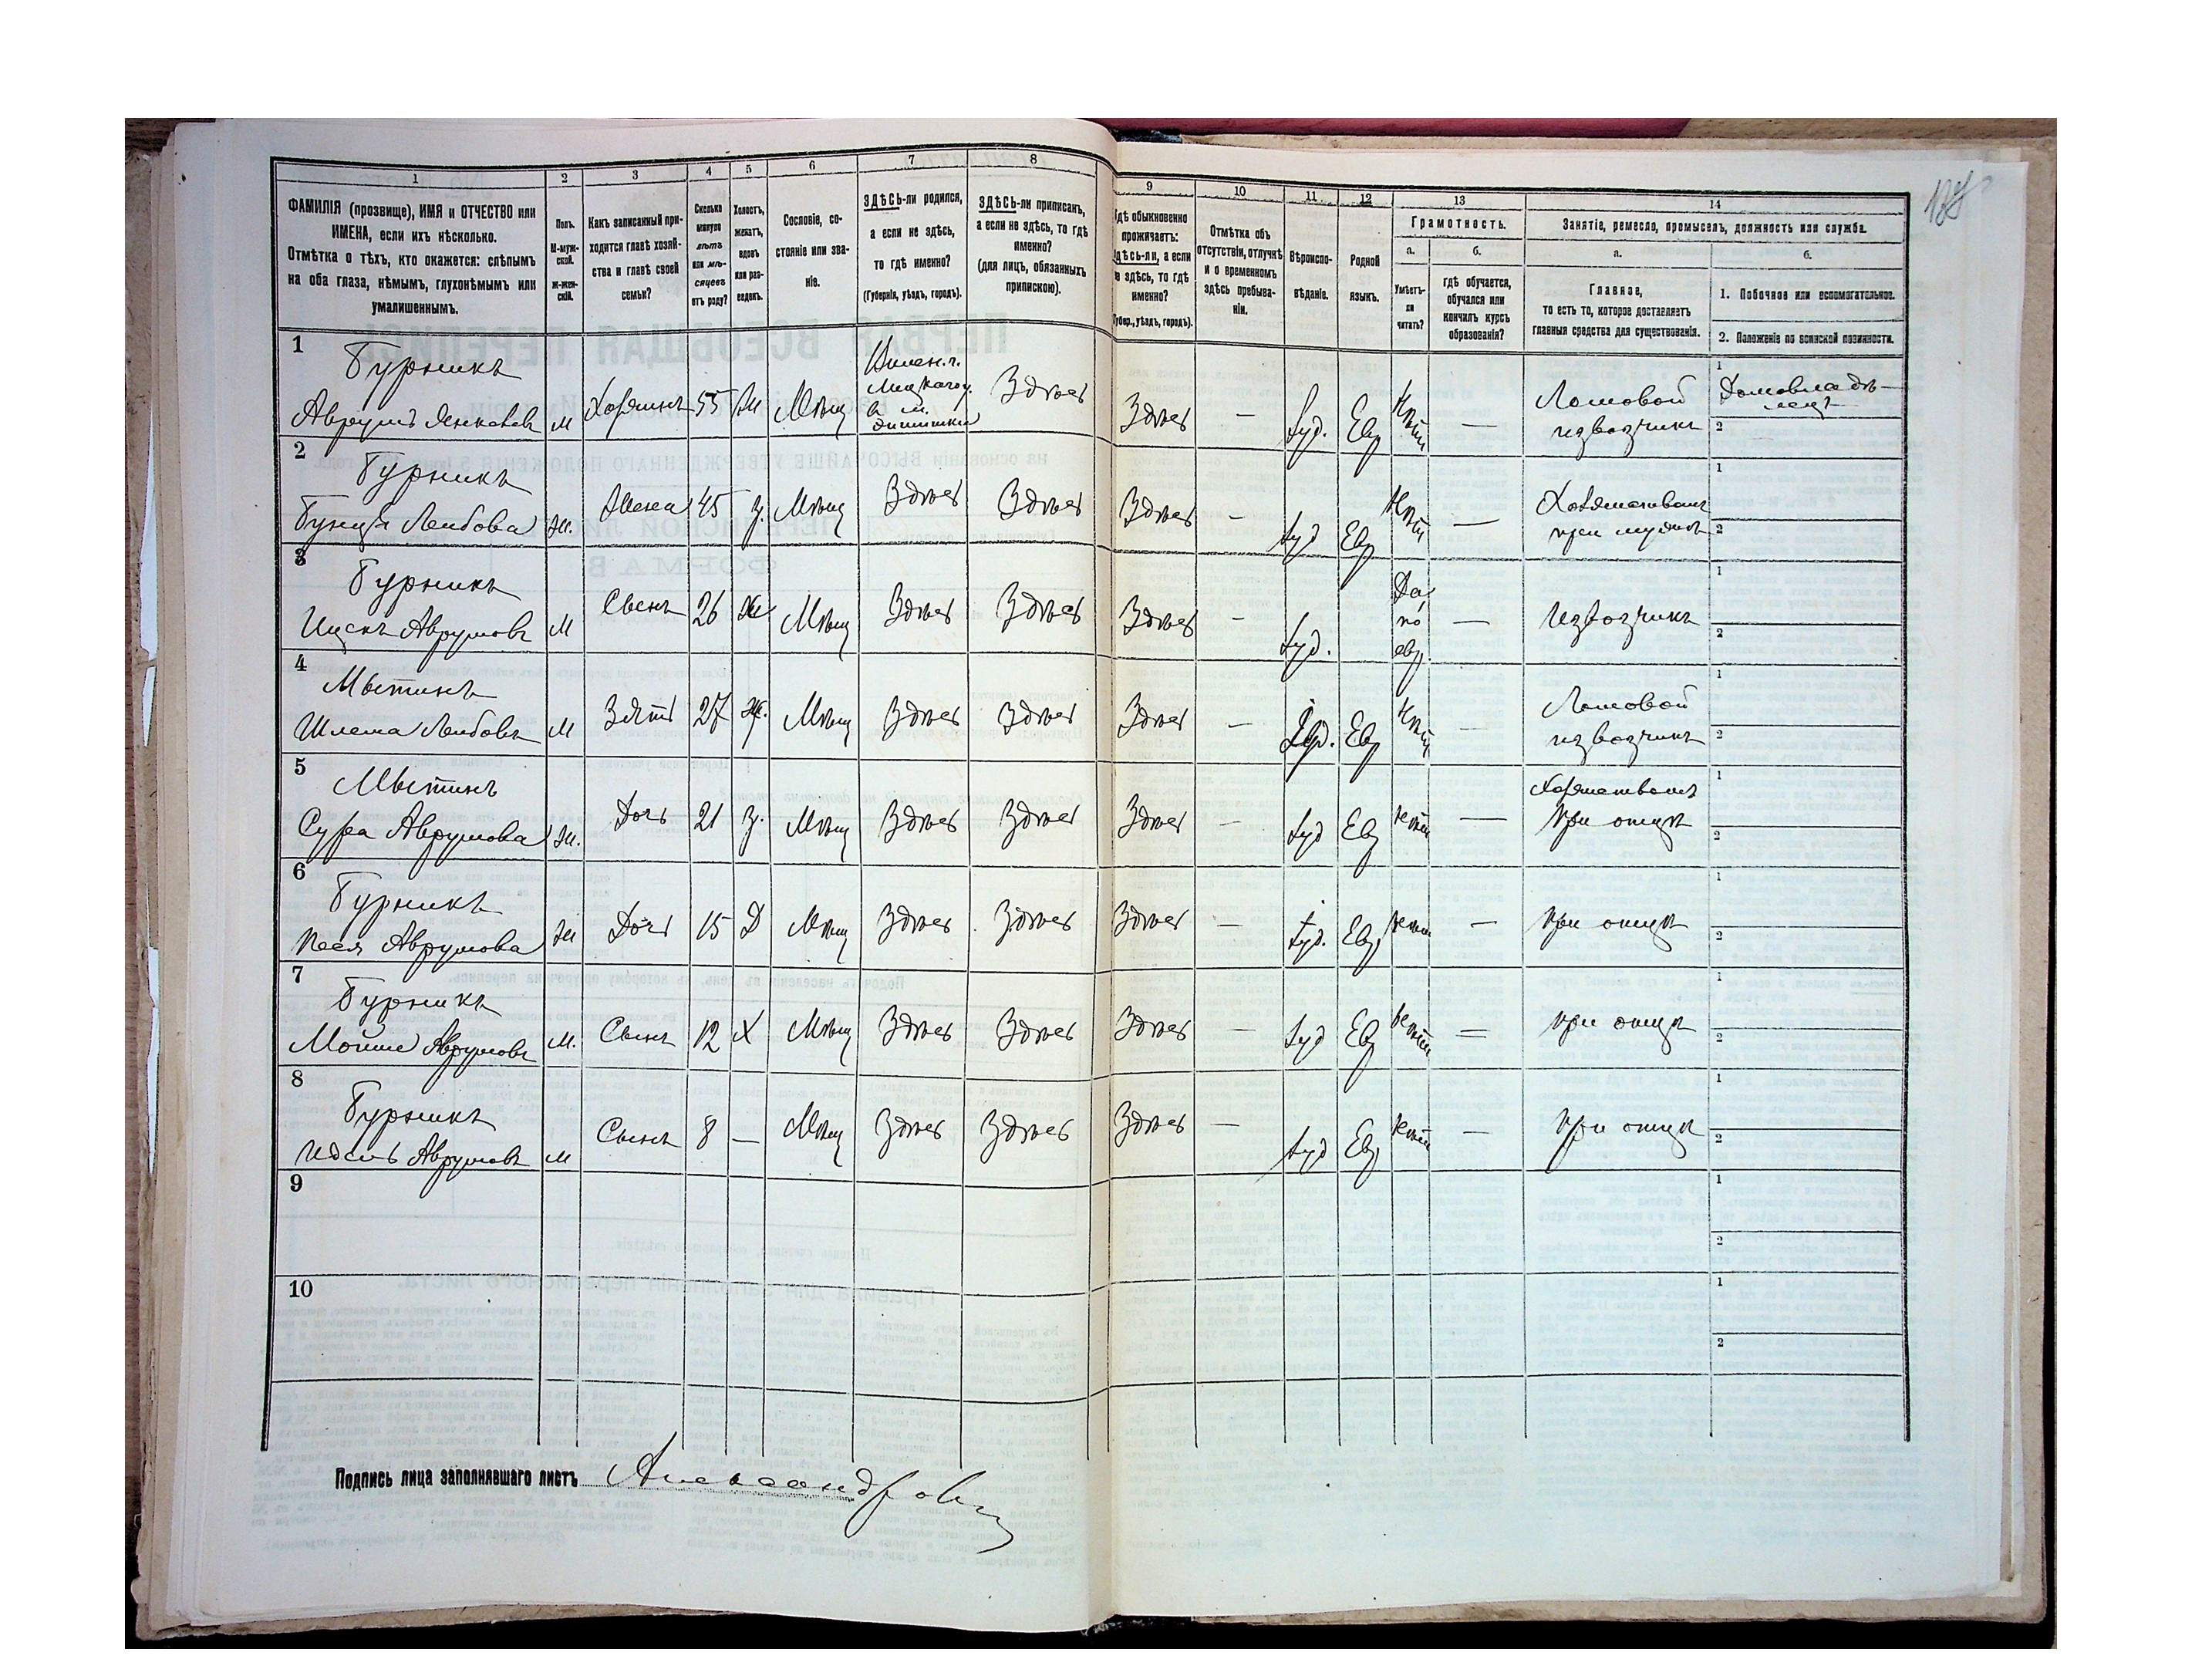 1 2 3 4 5 6 7 8 9 10 11 12 13 14
ФАМИЛІЯ (прозвище), ИМЯ и ОТЧЕСТВО или
ИМЕНА, если ихъ нѣсколько.
Отмѣтка о тѣхъ, кто окажется: слѣпымъ
на оба глаза, нѣмымъ, глухонѣмымъ или
умалишеннымъ.
Полъ.
М-муж-
ской.
Ж-жен-
скій.
Какъ записанный при-
ходится главѣ хозяй-
ства и главѣ своей
семьи?
Сколько
минуло
лѣтъ
или мѣ-
сяцевъ
отъ роду?
Холостъ,
женатъ,
вдовъ
или раз-
веденъ.
Сословіе, со-
стояніе или зва-
ніе.
ЗДѢСЬ-ли родился,
а если не здѣсь,
то гдѣ именно?
(Губернія, уѣздъ, городъ).
ЗДѢСЬ-ли приписанъ,
а если не здѣсь, то гдѣ
именно?
(для лицъ, обязанныхъ
припискою).
гдѣ обыкновенно
проживаетъ:
здѣсь-ли, а если
не здѣсь, то гдѣ
именно?
(Губер., уѣздъ, городъ).
Отмѣтка объ
отсутствіи, отлучкѣ
и о временномъ
здѣсь пребыва-
ніи.
Вѣроиспо-
вѣданіе.
Родной
языкъ.
Грамотность.
а.
Умѣетъ-
ли
читать?
б.
гдѣ обучается,
обучался или
кончилъ курсъ
образованія?
Занятіе, ремесло, промыселъ, должность или служба.
а.
Главное,
то есть то, которое доставляетъ
главныя средства для существованія.
б.
1. Побочное или вспомогательное.
2. Положеніе по воинской повинности.
1
Бурникъ
Аврумъ Янкелевъ М Хозяинъ 55 Ж Мѣщ
в м.
Здѣсь Здѣсь — Іуд. Евр Нѣтъ — Ломовой
извозчикъ
1 Домовладѣ-
лецъ
2
2
Бурникъ
Лейбова Ж. Жена 45 З. Мѣщ Здѣсь Здѣсь Здѣсь — Іуд Евр Нѣтъ —
при мужѣ
1
2
3
Бурникъ
Ицекъ Аврумовъ М Сынъ 26 Ж Мѣщ Здѣсь Здѣсь Здѣсь — Іуд. Да
по
евр. — Извозчикъ
1
2
4
Мытникъ
Шлема Лейбовъ М Зять 27 Ж. Мѣщ Здѣсь Здѣсь Здѣсь — Іуд. Евр Нѣтъ — Ломовой
извозчикъ
1
2
5
Мытникъ
Сура Аврумова Ж. Дочь 21 З. Мѣщ Здѣсь Здѣсь Здѣсь — Іуд Евр Нѣтъ —
при отцѣ
1
2
6
Бурникъ
Песя Аврумова Ж Дочь 15 Д Мѣщ Здѣсь Здѣсь Здѣсь — Іуд. Евр Нѣтъ — при отцѣ
1
2
7
Бурникъ
Мойше Аврумовъ М. Сынъ 12 Х Мѣщ Здѣсь Здѣсь Здѣсь — Іуд Евр Нѣтъ = при отцѣ
1
2
8
Бурникъ
Идель Аврумовъ М Сынъ 8 — Мѣщ Здѣсь Здѣсь Здѣсь — Іуд Евр Нѣтъ — при отцѣ
1
2
9
1
2
10
1
2
Подпись лица заполнявшаго листъ